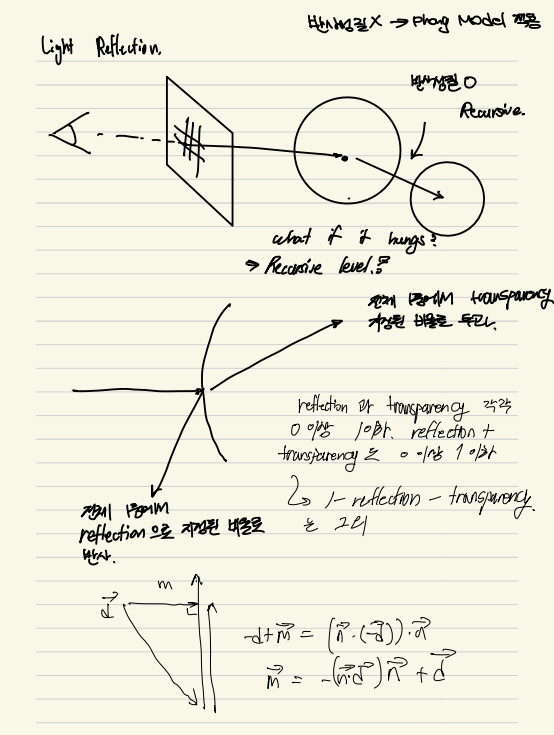 반사성질 X → Phong Model 적용
Light Reflection.
반사성질 O
Recursive.
what if it hungs?
→ Recursive level.을
전체 1중에서 transparency
지정된 비율로 투과.
reflection 과 transparency 각각
0 이상 1 이하. reflection +
transparency 는 0 이상 1 이하
↳ 1 - reflection - transparency.
는 그외
전체 1중에서
reflection 으로 지정된 비율로
반사.
m
d
-d+m = (n·(-d))·n
m = -(n·d)n + d